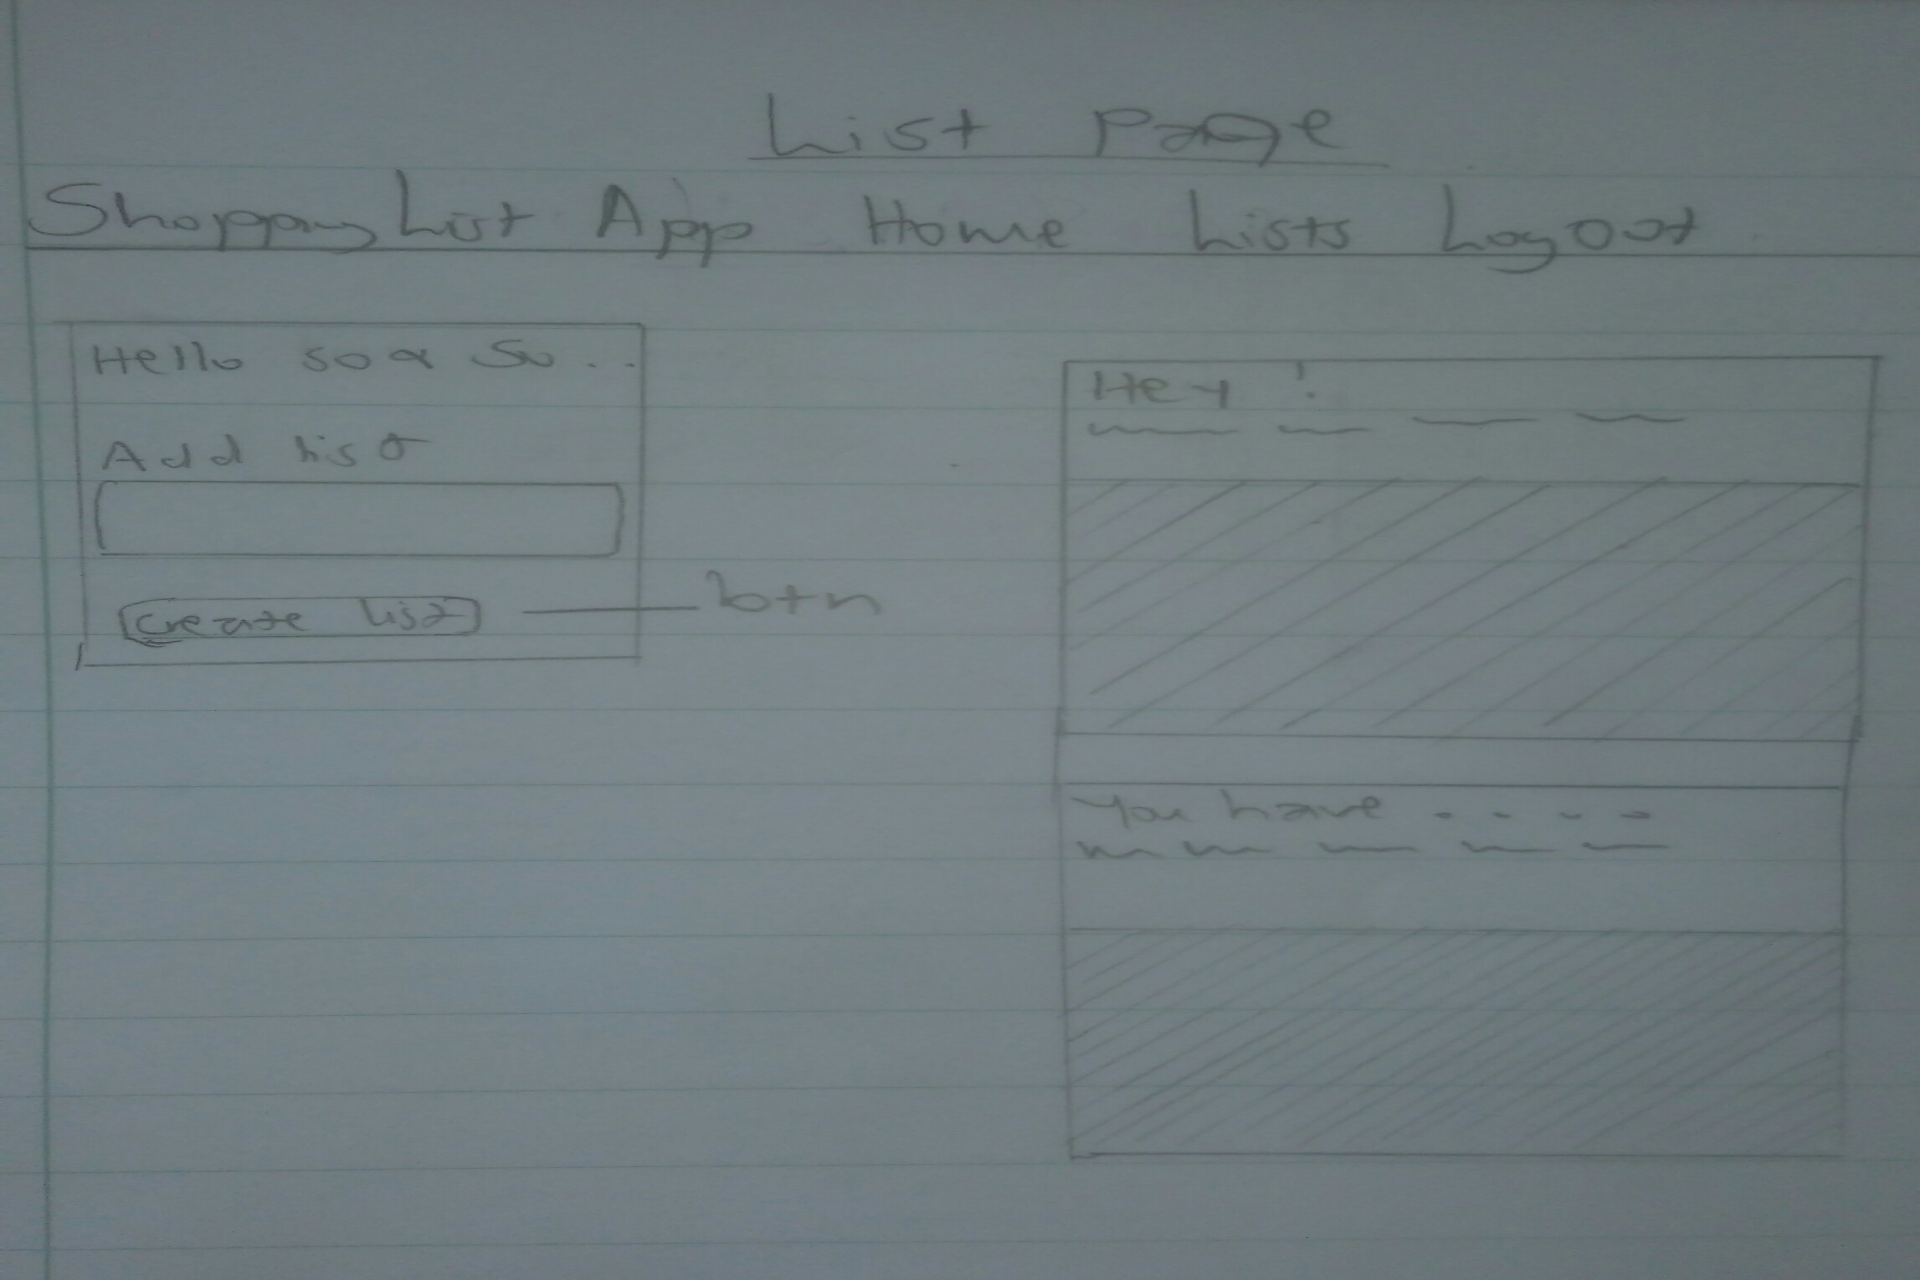 List page
Shopping List App Home Lists Logout
Hello so & so ..
Add list
Create list
btn
Hey !
You have . . . .